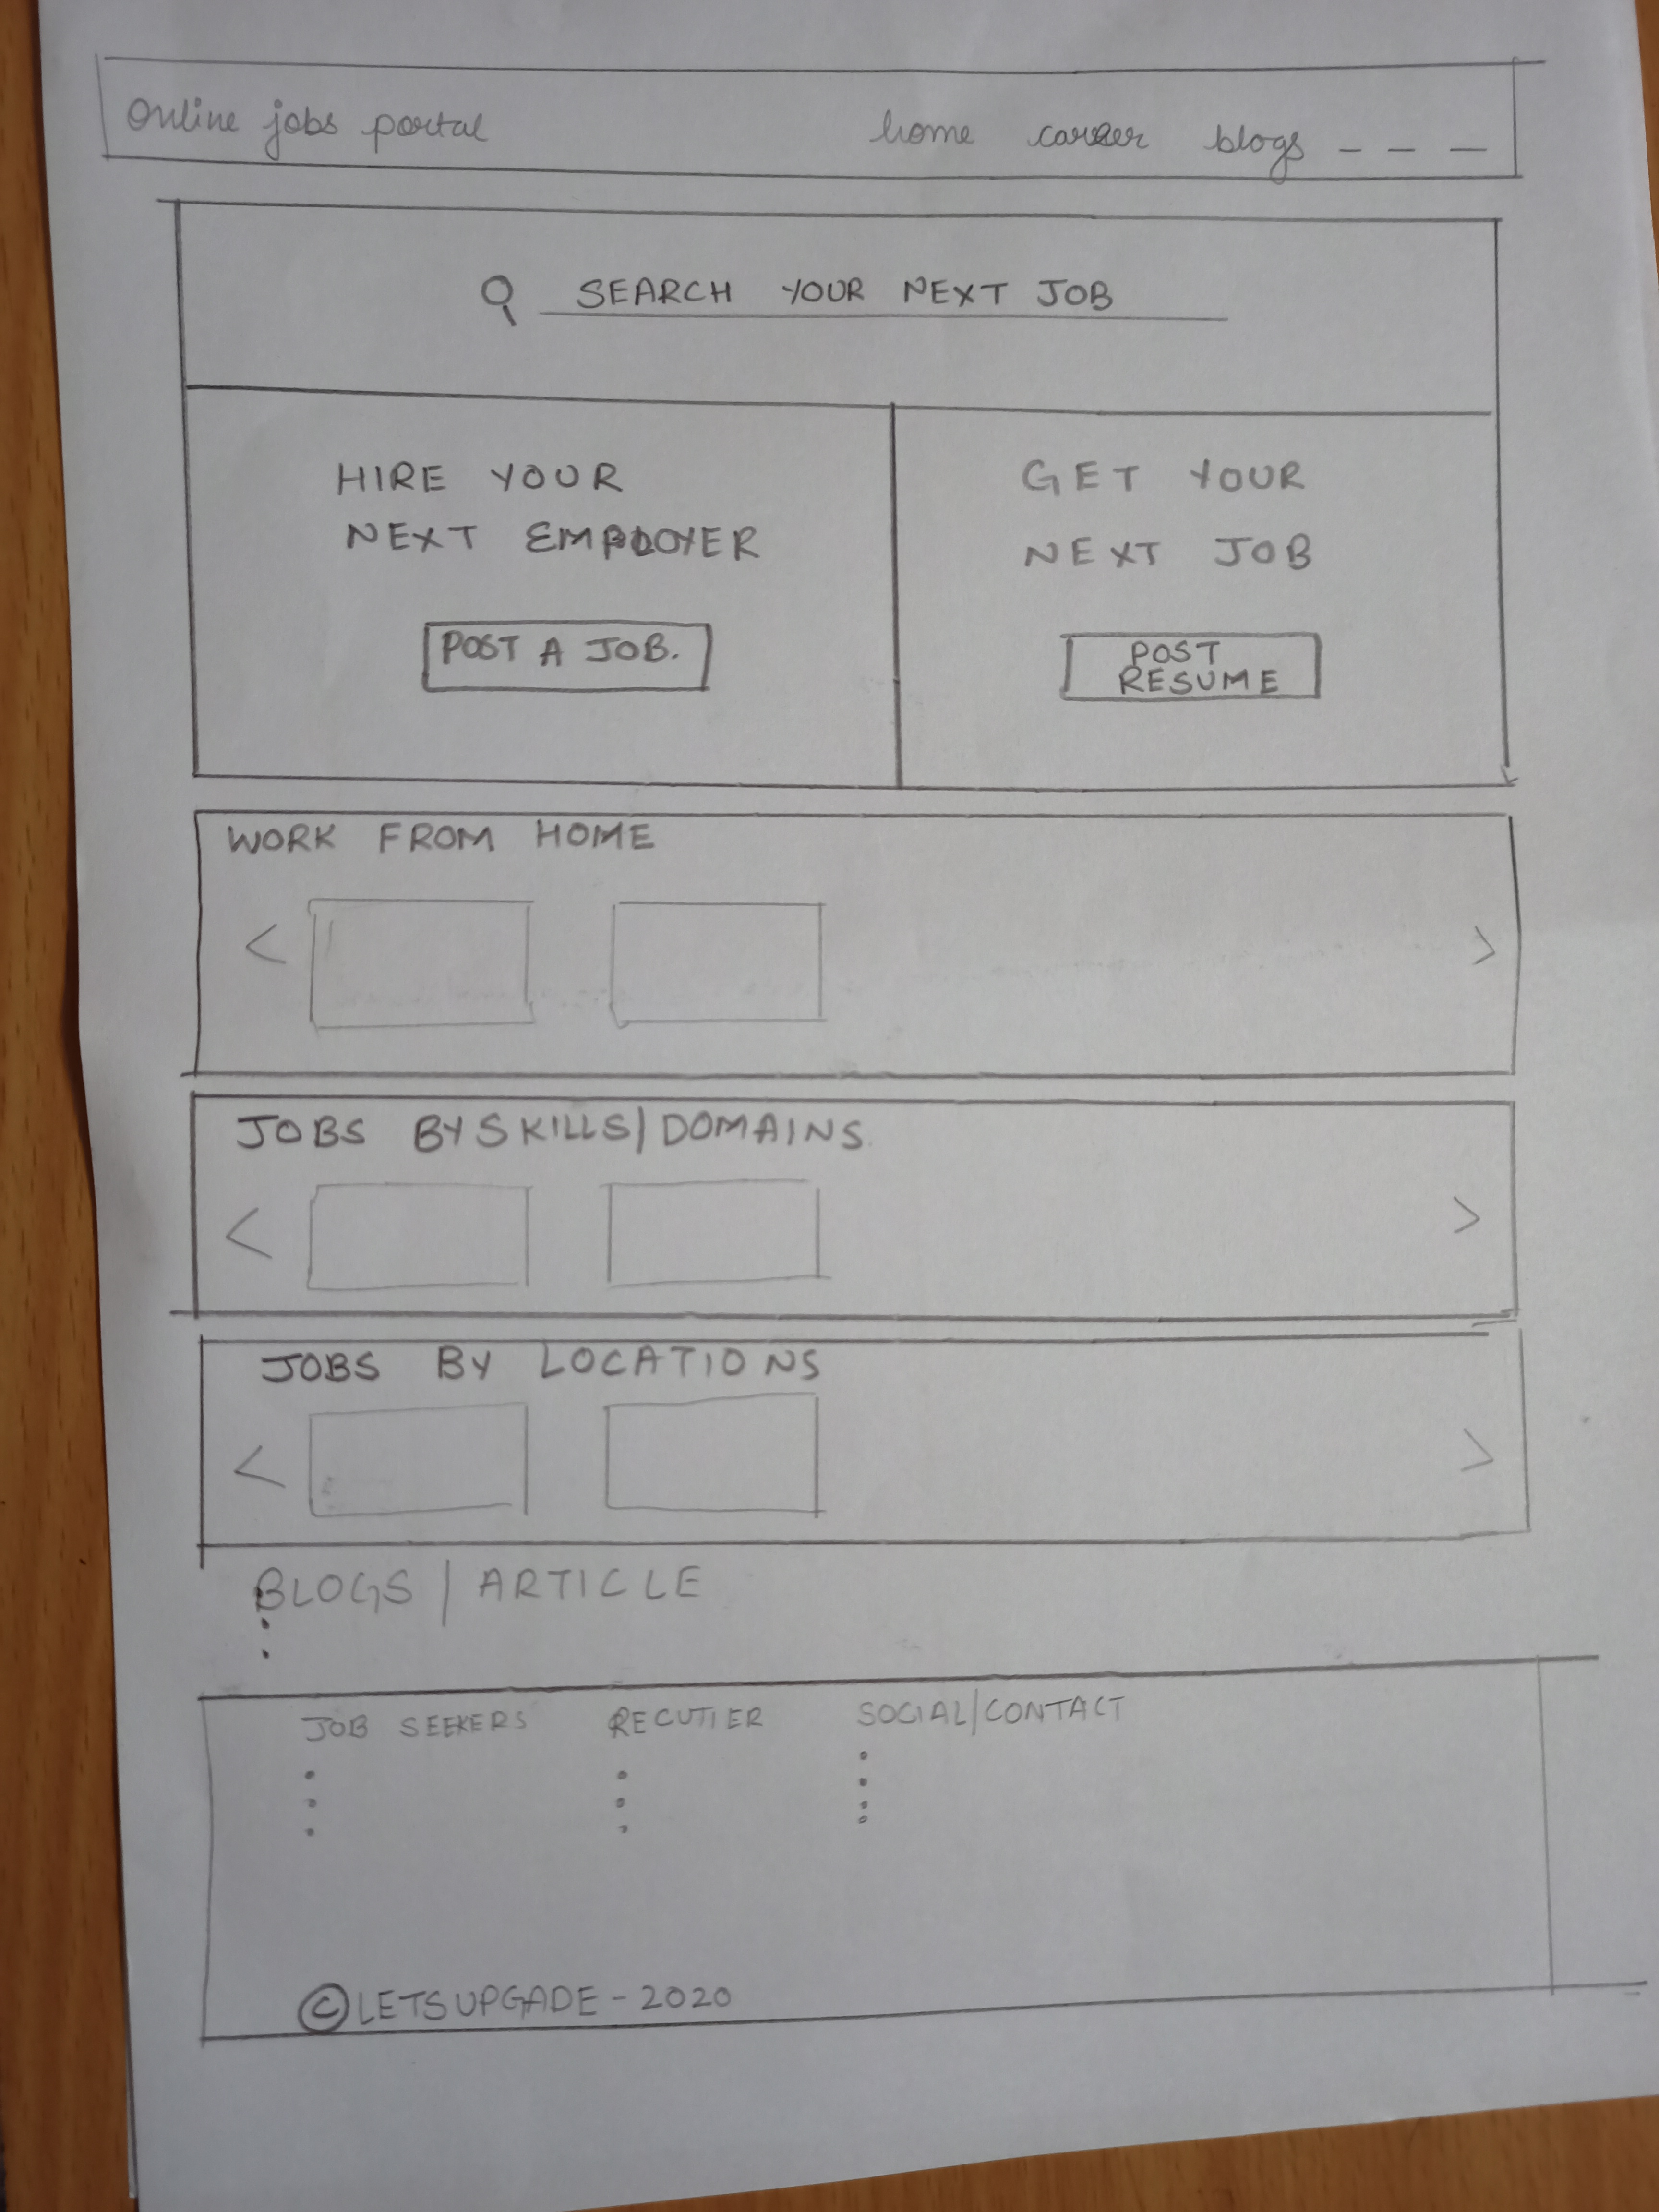 Online jobs portal home career blogs _ _ _
SEARCH YOUR NEXT JOB
HIRE YOUR
NEXT EMPLOYER
POST A JOB.
GET YOUR
NEXT JOB
POST
RESUME
WORK FROM HOME
< >
JOBS BY SKILLS/DOMAINS
< >
JOBS BY LOCATIONS
< >
BLOGS / ARTICLE
JOB SEEKERS RECUTIER SOCIAL/CONTACT
© LETSUPGADE - 2020